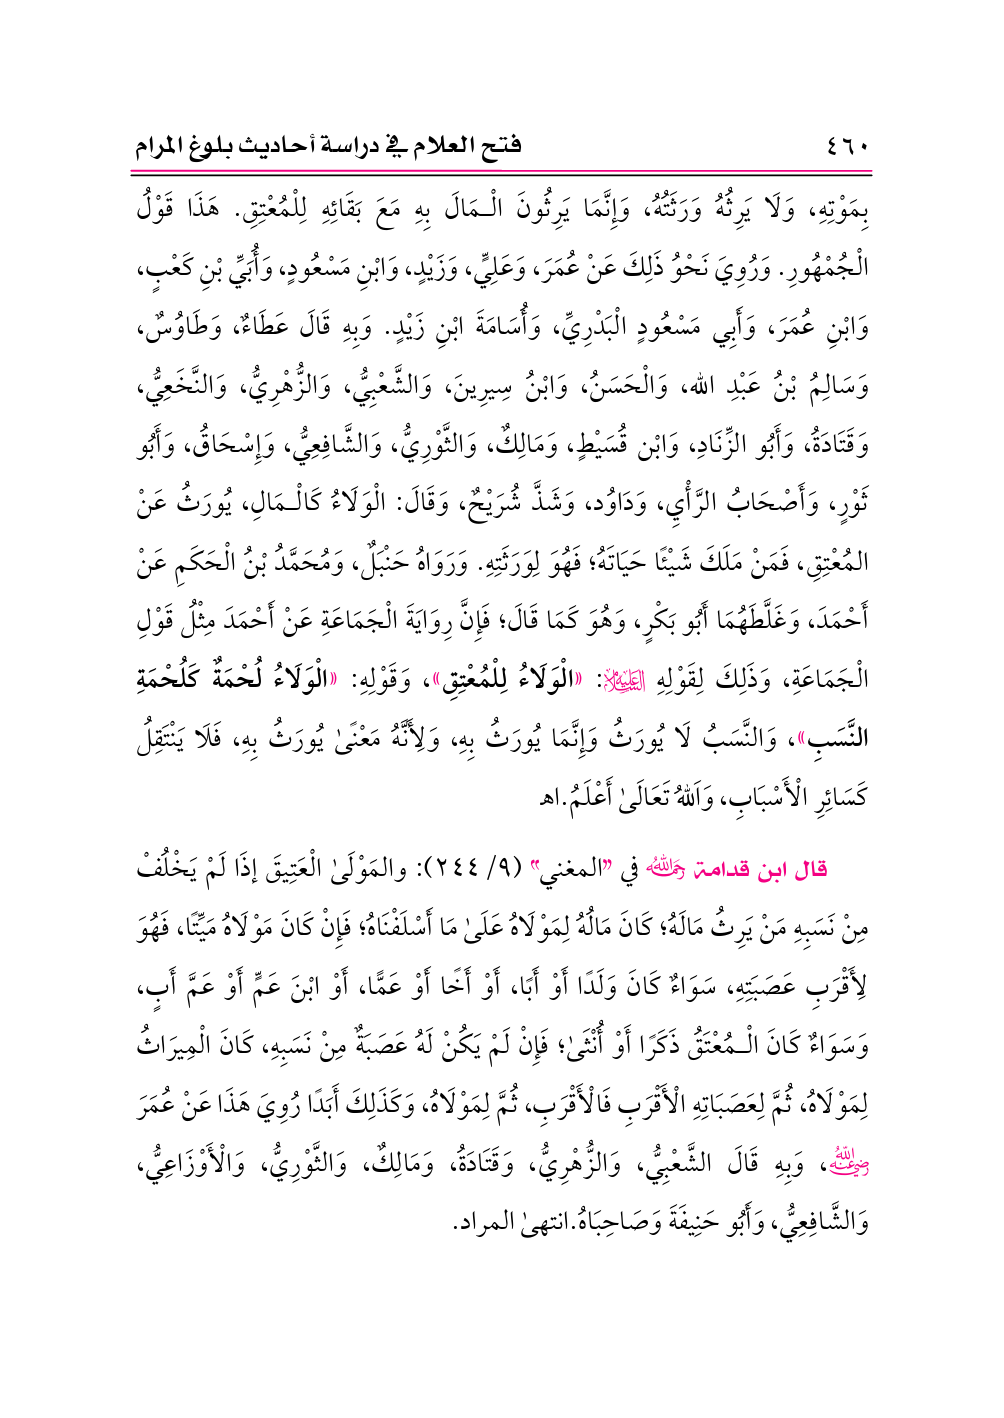 ٤٦٠ فتح العلام في دراسة أحاديث بلوغ المرام
بِمَوْتِهِ، وَلَا يَرِثُهُ وَرَثَتُهُ، وَإِنَّمَا يَرِثُونَ الْـمَالَ بِهِ مَعَ بَقَائِهِ لِلْمُعْتِقِ. هَذَا قَوْلُ
الْجُمْهُورِ. وَرُوِيَ نَحْوُ ذَلِكَ عَنْ عُمَرَ، وَعَلِيٍّ، وَزَيْدٍ، وَابْنِ مَسْعُودٍ، وَأُبَيِّ بْنِ كَعْبٍ،
وَابْنِ عُمَرَ، وَأَبِي مَسْعُودٍ الْبَدْرِيِّ، وَأُسَامَةَ ابْنِ زَيْدٍ. وَبِهِ قَالَ عَطَاءٌ، وَطَاوُسٌ،
وَسَالِمُ بْنُ عَبْدِ الله، وَالْحَسَنُ، وَابْنُ سِيرِينَ، وَالشَّعْبِيُّ، وَالزُّهْرِيُّ، وَالنَّخَعِيُّ،
وَقَتَادَةُ، وَأَبُو الزِّنَادِ، وَابْن قُسَيْطٍ، وَمَالِكٌ، وَالثَّوْرِيُّ، وَالشَّافِعِيُّ، وَإِسْحَاقُ، وَأَبُو
ثَوْرٍ، وَأَصْحَابُ الرَّأْيِ، وَدَاوُد، وَشَذَّ شُرَيْحٌ، وَقَالَ: الْوَلَاءُ كَالْـمَالِ، يُورَثُ عَنْ
المُعْتِقِ، فَمَنْ مَلَكَ شَيْئًا حَيَاتَهُ؛ فَهُوَ لِوَرَثَتِهِ. وَرَوَاهُ حَنْبَلٌ، وَمُحَمَّدُ بْنُ الْحَكَمِ عَنْ
أَحْمَدَ، وَغَلَّطَهُمَا أَبُو بَكْرٍ، وَهُوَ كَمَا قَالَ؛ فَإِنَّ رِوَايَةَ الْجَمَاعَةِ عَنْ أَحْمَدَ مِثْلُ قَوْلِ
الْجَمَاعَةِ، وَذَلِكَ لِقَوْلِهِ عليه السلام: «الْوَلَاءُ لِلْمُعْتِقِ»، وَقَوْلِهِ: «الْوَلَاءُ لُحْمَةٌ كَلُحْمَةِ
النَّسَبِ»، وَالنَّسَبُ لَا يُورَثُ وَإِنَّمَا يُورَثُ بِهِ، وَلِأَنَّهُ مَعْنًى يُورَثُ بِهِ، فَلَا يَنْتَقِلُ
كَسَائِرِ الْأَسْبَابِ، وَاَللهُ تَعَالَى أَعْلَمُ.اهـ
قال ابن قدامة رحمه الله في "المغني" (٩/ ٢٤٤): والمَوْلَى الْعَتِيقَ إذَا لَمْ يَخْلُفْ
مِنْ نَسَبِهِ مَنْ يَرِثُ مَالَهُ؛ كَانَ مَالُهُ لِمَوْلَاهُ عَلَى مَا أَسْلَفْنَاهُ؛ فَإِنْ كَانَ مَوْلَاهُ مَيِّتًا، فَهُوَ
لِأَقْرَبِ عَصَبَتِهِ، سَوَاءٌ كَانَ وَلَدًا أَوْ أَبًا، أَوْ أَخًا أَوْ عَمًّا، أَوْ ابْنَ عَمٍّ أَوْ عَمَّ أَبٍ،
وَسَوَاءٌ كَانَ الْـمُعْتَقُ ذَكَرًا أَوْ أُنْثَى؛ فَإِنْ لَمْ يَكُنْ لَهُ عَصَبَةٌ مِنْ نَسَبِهِ، كَانَ الْمِيرَاثُ
لِمَوْلَاهُ، ثُمَّ لِعَصَبَاتِهِ الْأَقْرَبِ فَالْأَقْرَبِ، ثُمَّ لِمَوْلَاهُ، وَكَذَلِكَ أَبَدًا رُوِيَ هَذَا عَنْ عُمَرَ
رضي الله عنه، وَبِهِ قَالَ الشَّعْبِيُّ، وَالزُّهْرِيُّ، وَقَتَادَةُ، وَمَالِكٌ، وَالثَّوْرِيُّ، وَالْأَوْزَاعِيُّ،
وَالشَّافِعِيُّ، وَأَبُو حَنِيفَةَ وَصَاحِبَاهُ.انتهى المراد.